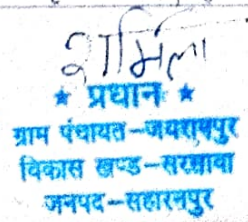 शर्मिला
★ प्रधान ★
ग्राम पंचायत-जयरामपुर
विकास खण्ड-सरसावा
जनपद-सहारनपुर